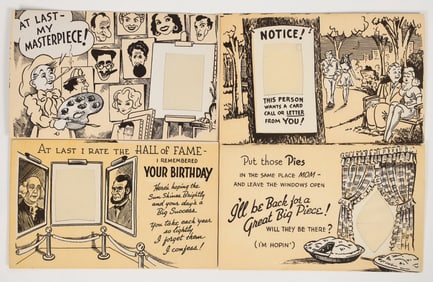 AT LAST -
MY
MASTERPIECE!
NOTICE!
THIS PERSON
WANTS A CARD
CALL OR LETTER
FROM YOU!
AT LAST I RATE THE HALL OF FAME -
I REMEMBERED
YOUR BIRTHDAY
Here's hoping the
Sun Shines Brightly
and your day's a
Big Success
You take each year
so lightly
I forget them
I confess!
Put those Pies
IN THE SAME PLACE MOM -
AND LEAVE THE WINDOWS OPEN
I'll be Back for a
Great Big Piece!
WILL THEY BE THERE?
(I'M HOPIN')